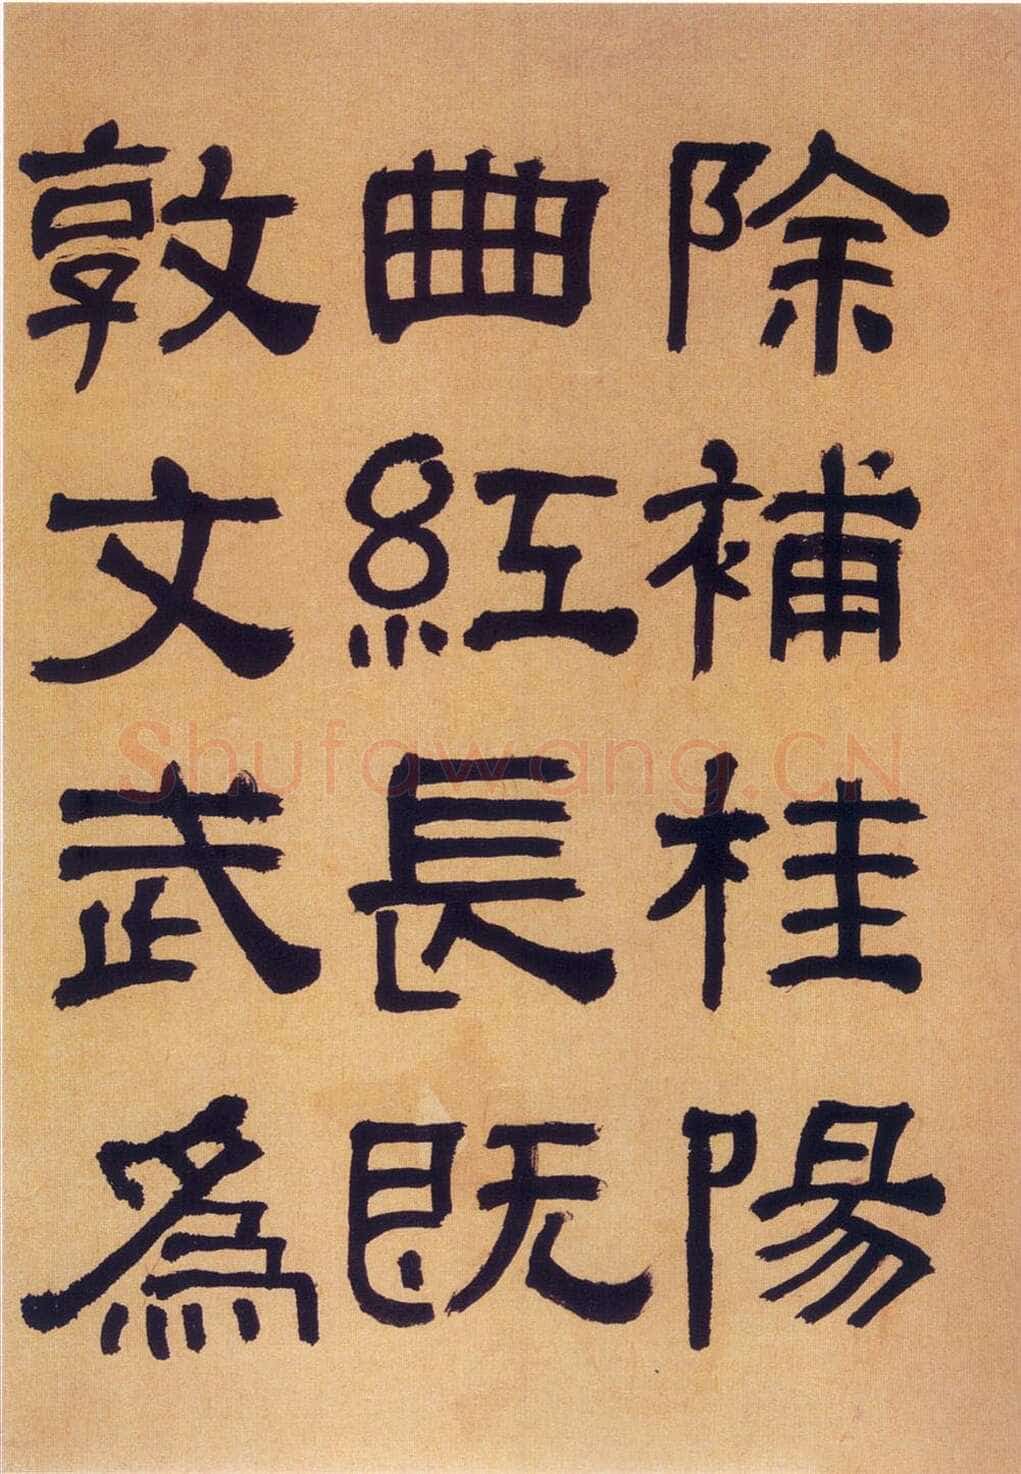 除補桂陽
曲紅長既
敦文武為
Shufawang.CN